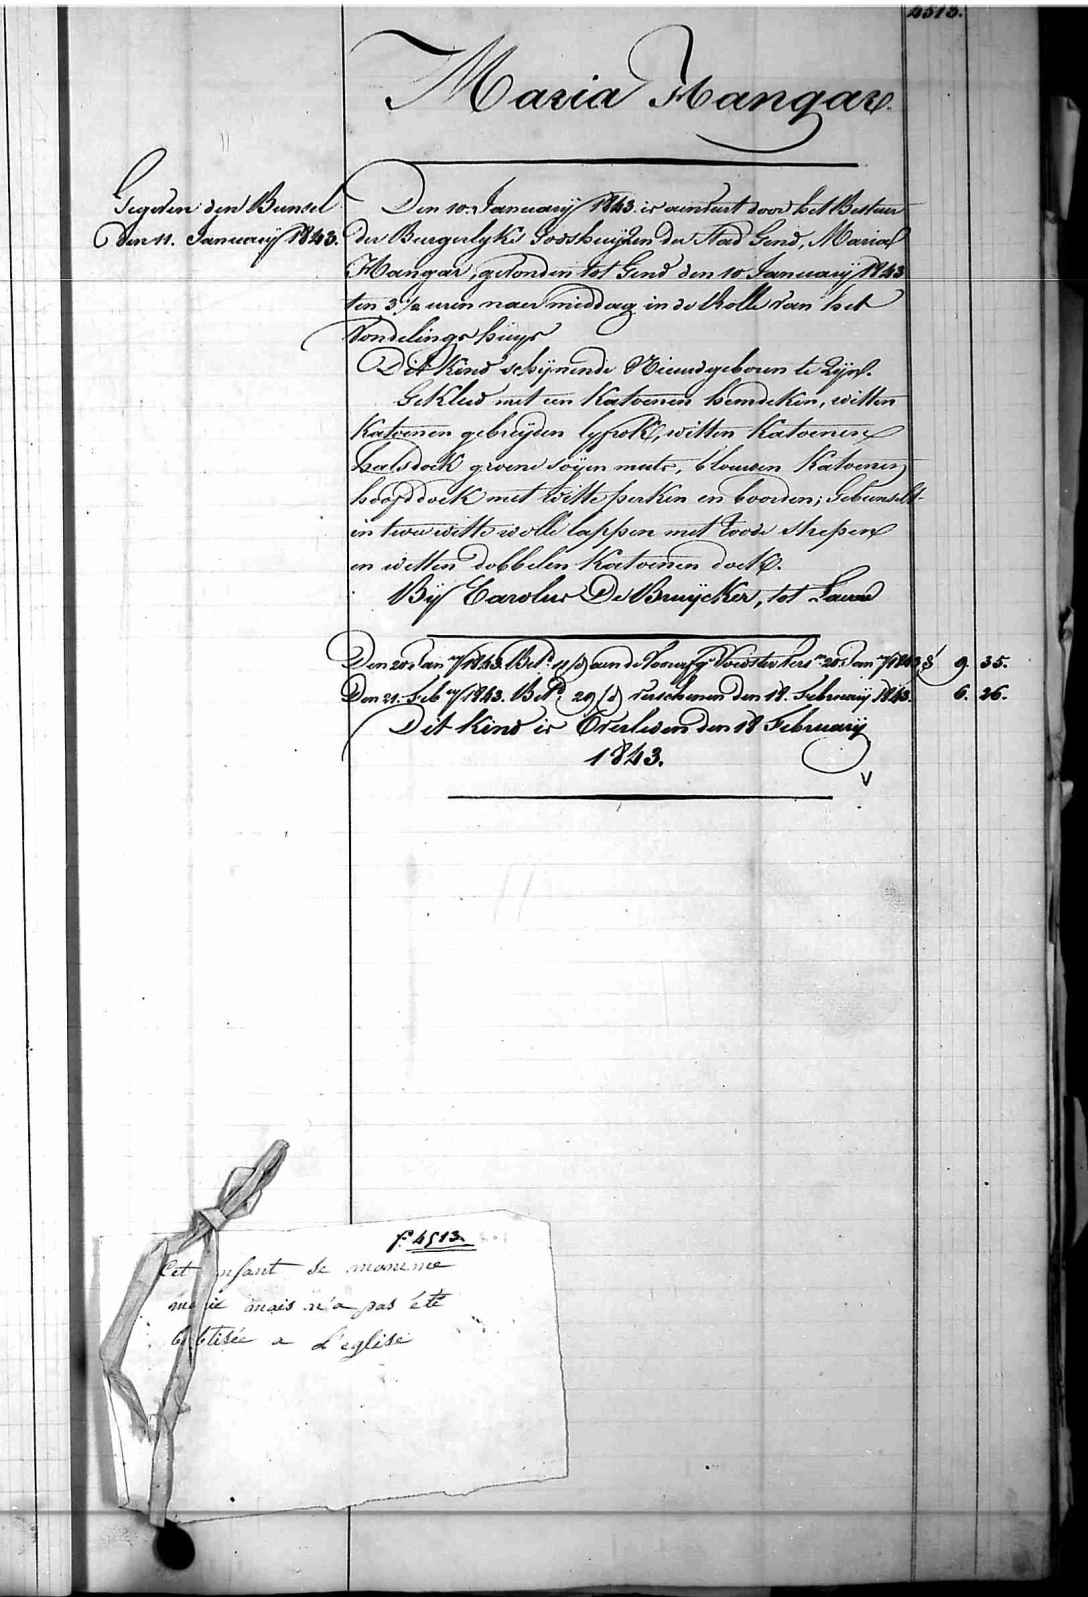 4513.
Maria Hangar.
Gegeven den Bunsel
den 11. January 1843.
Den 10. January 1843 is aenveert door het Bestuer
der Burgerlyke Godshuyzen der Stad Gend, Maria
Hangar, gevonden tot Gend den 10 January 1843
ten 3 ½ uren naer middag in de Rolle van het
Vondelings huys
Dit Kind schynende Nieuwgeboren te Zyn.
Gekleed met een Katoenen hemdeken, witten
Katoenen gebreyden lyfrok, witten Katoenen
halsdoek groene soyen muts, blauwen Katoenen
hoofddoek met witte perken en boorden; Gebunselt
in twee witte wolle lappen met roode strepen
en witten dobbelen Katoenen doek.
By Carolus De Bruycker, tot
Den 20 Jan.ry 1843. Bet. aen de 20 Jan.ry 1843 9. 35.
Den 21. Feb.ry 1843. Bet. 29 verschenen den 18. February 1843. 6. 26.
Dit Kind is Overleden den 18 February
1843.
f. 4513.
Cet enfant se nomme
marie mais n'a pas été
babtisée a L'eglise